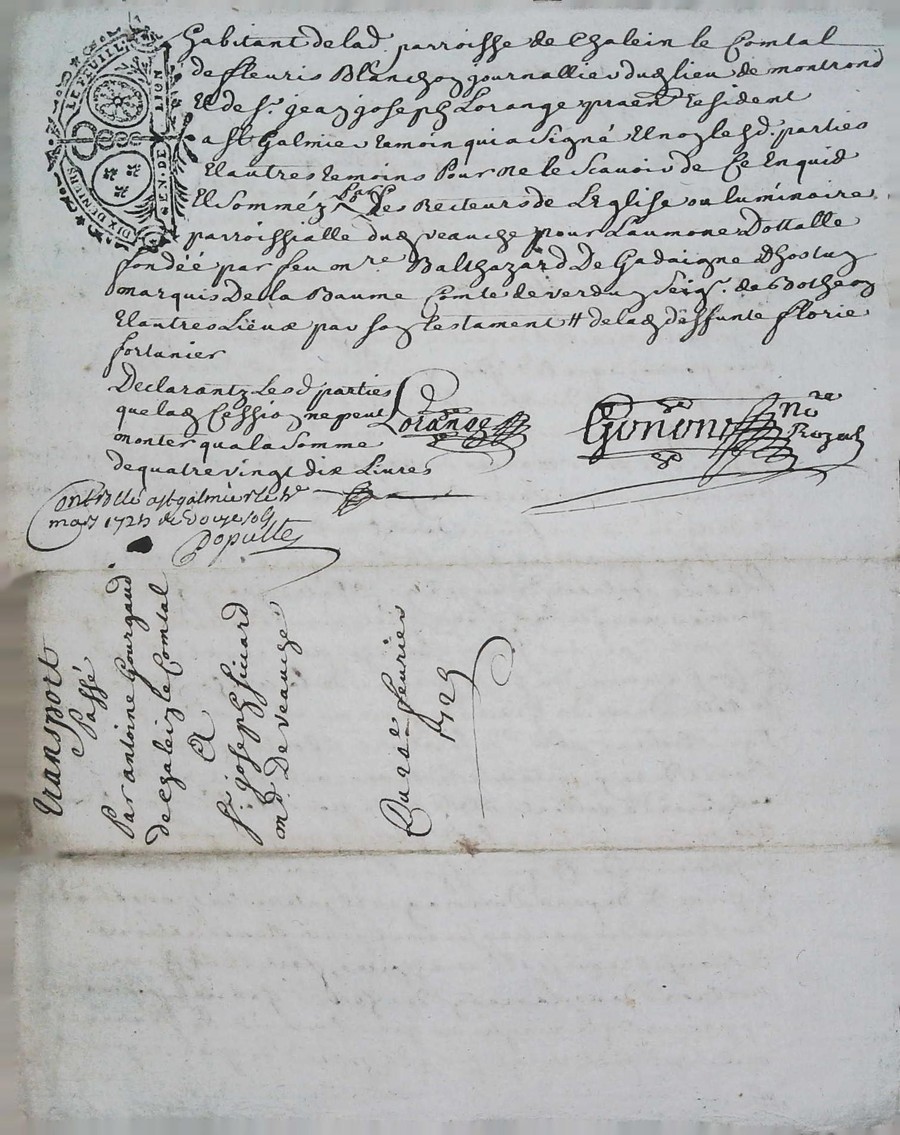 LE FEUILLET
GEN. DE LION
DIX DENIERS
habitant de lad. parroisse de Chalein le Comtal
de fleuris Blanchon journallier dud lieu de montrond
Et de sr. jean joseph Lorange praen resident
a st Galmier temoin qui a signé Et non lesd. parties
Et autres temoins Pour ne le scavoir de Ce Enquis
Et sommés par Les Recteurs de L'Eglise ou luminaire
parroissialle dud veauche pour L'aumone Dottalle
fondée par feu mre Balthazard De Gadaigne Dhostun
marquis De la Baume Comte de verdun seigr. de Botheon
Et autres Lieux par son testament # de lad deffunte florie
fortunier
Declarantz Lesd parties
que lad Cession ne peut
monter qua la somme
de quatre vingt dix Livres
Lorange
Gonon nore
Royal
Controllé a st galmier le
mars 1725
Dopulte
transport
Passé
Par antoine Gourgaud
de Chalein le Comtal
A
sr. joseph sicard
md. De veauche
Du 25e fevrier
1725